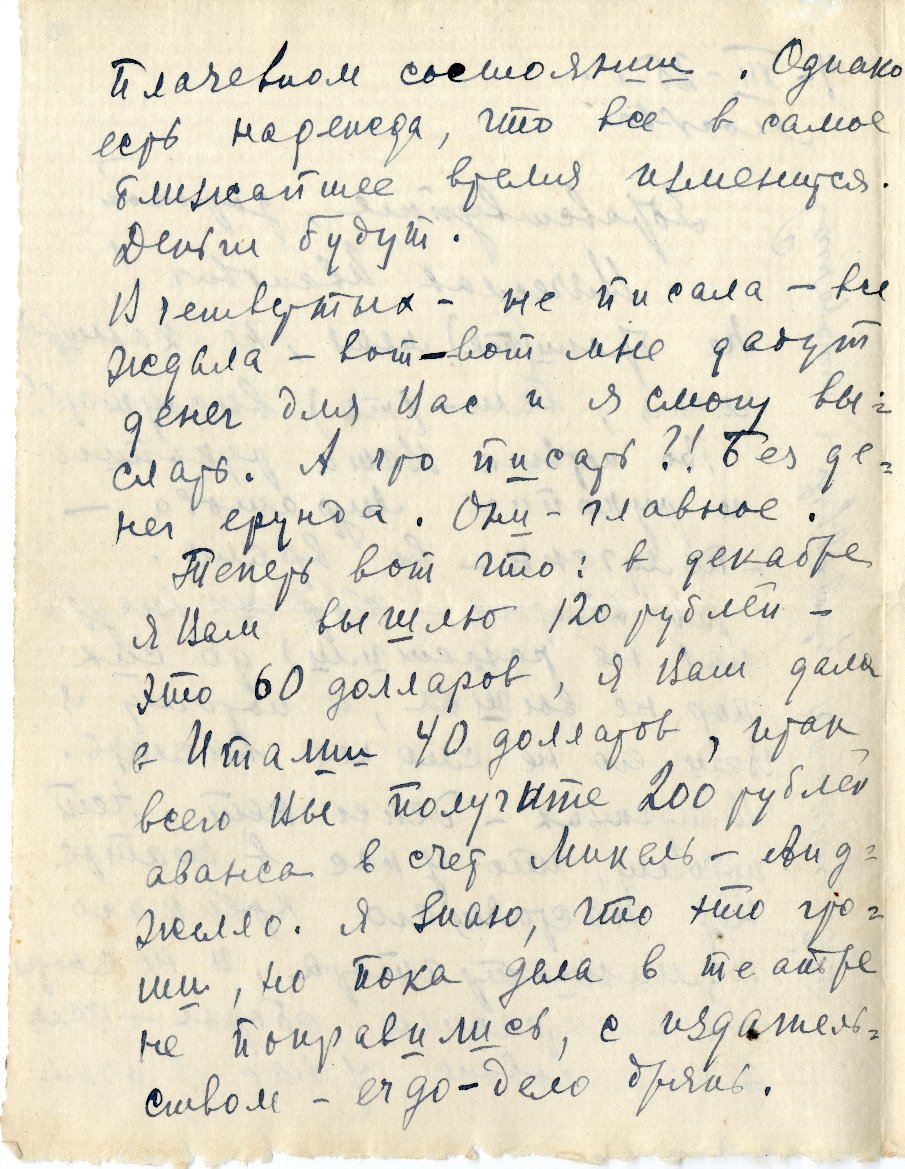 плачевном состоянии. Однако
есть надежда, что все в самое
ближайшее время изменится.
Деньги будут.
В четвертых - не писала - все
ждала - вот-вот мне дадут
денег для Вас и я смогу вы=
слать. А что писать?! Без де=
нег ерунда. Они - главное.
Теперь вот что: в декабре
я Вам вышлю 120 рублей -
это 60 долларов, я Вам дала
в Италии 40 долларов, итак
всего Вы получите 200 рублей
аванса в счет Микель-Анд=
желло. Я знаю, что это гро=
ши, но пока дела в театре
не поправились, с издатель=
ством - дело дрянь.